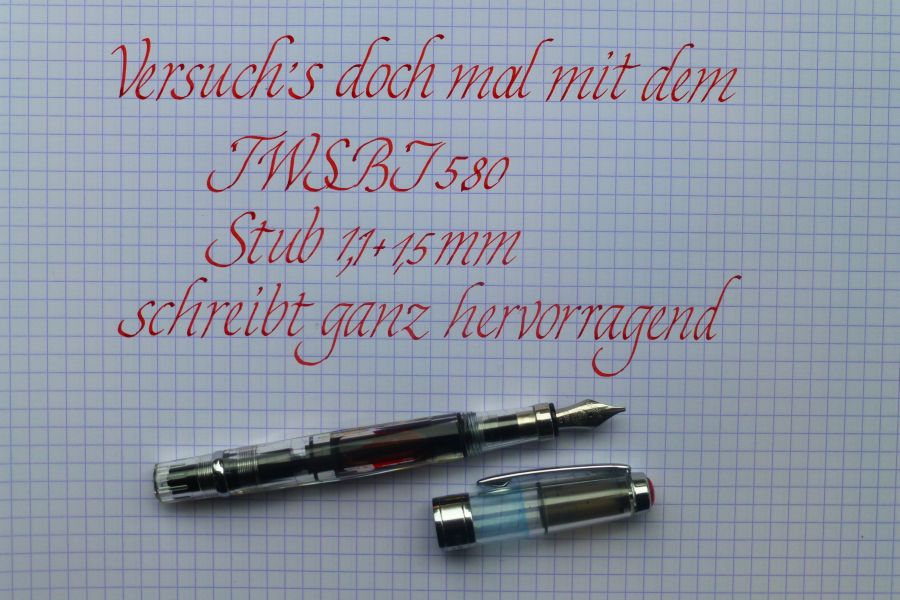 Versuch's doch mal mit dem
TWSBI 580
Stub 1,1+1,5 mm
schreibt ganz hervorragend